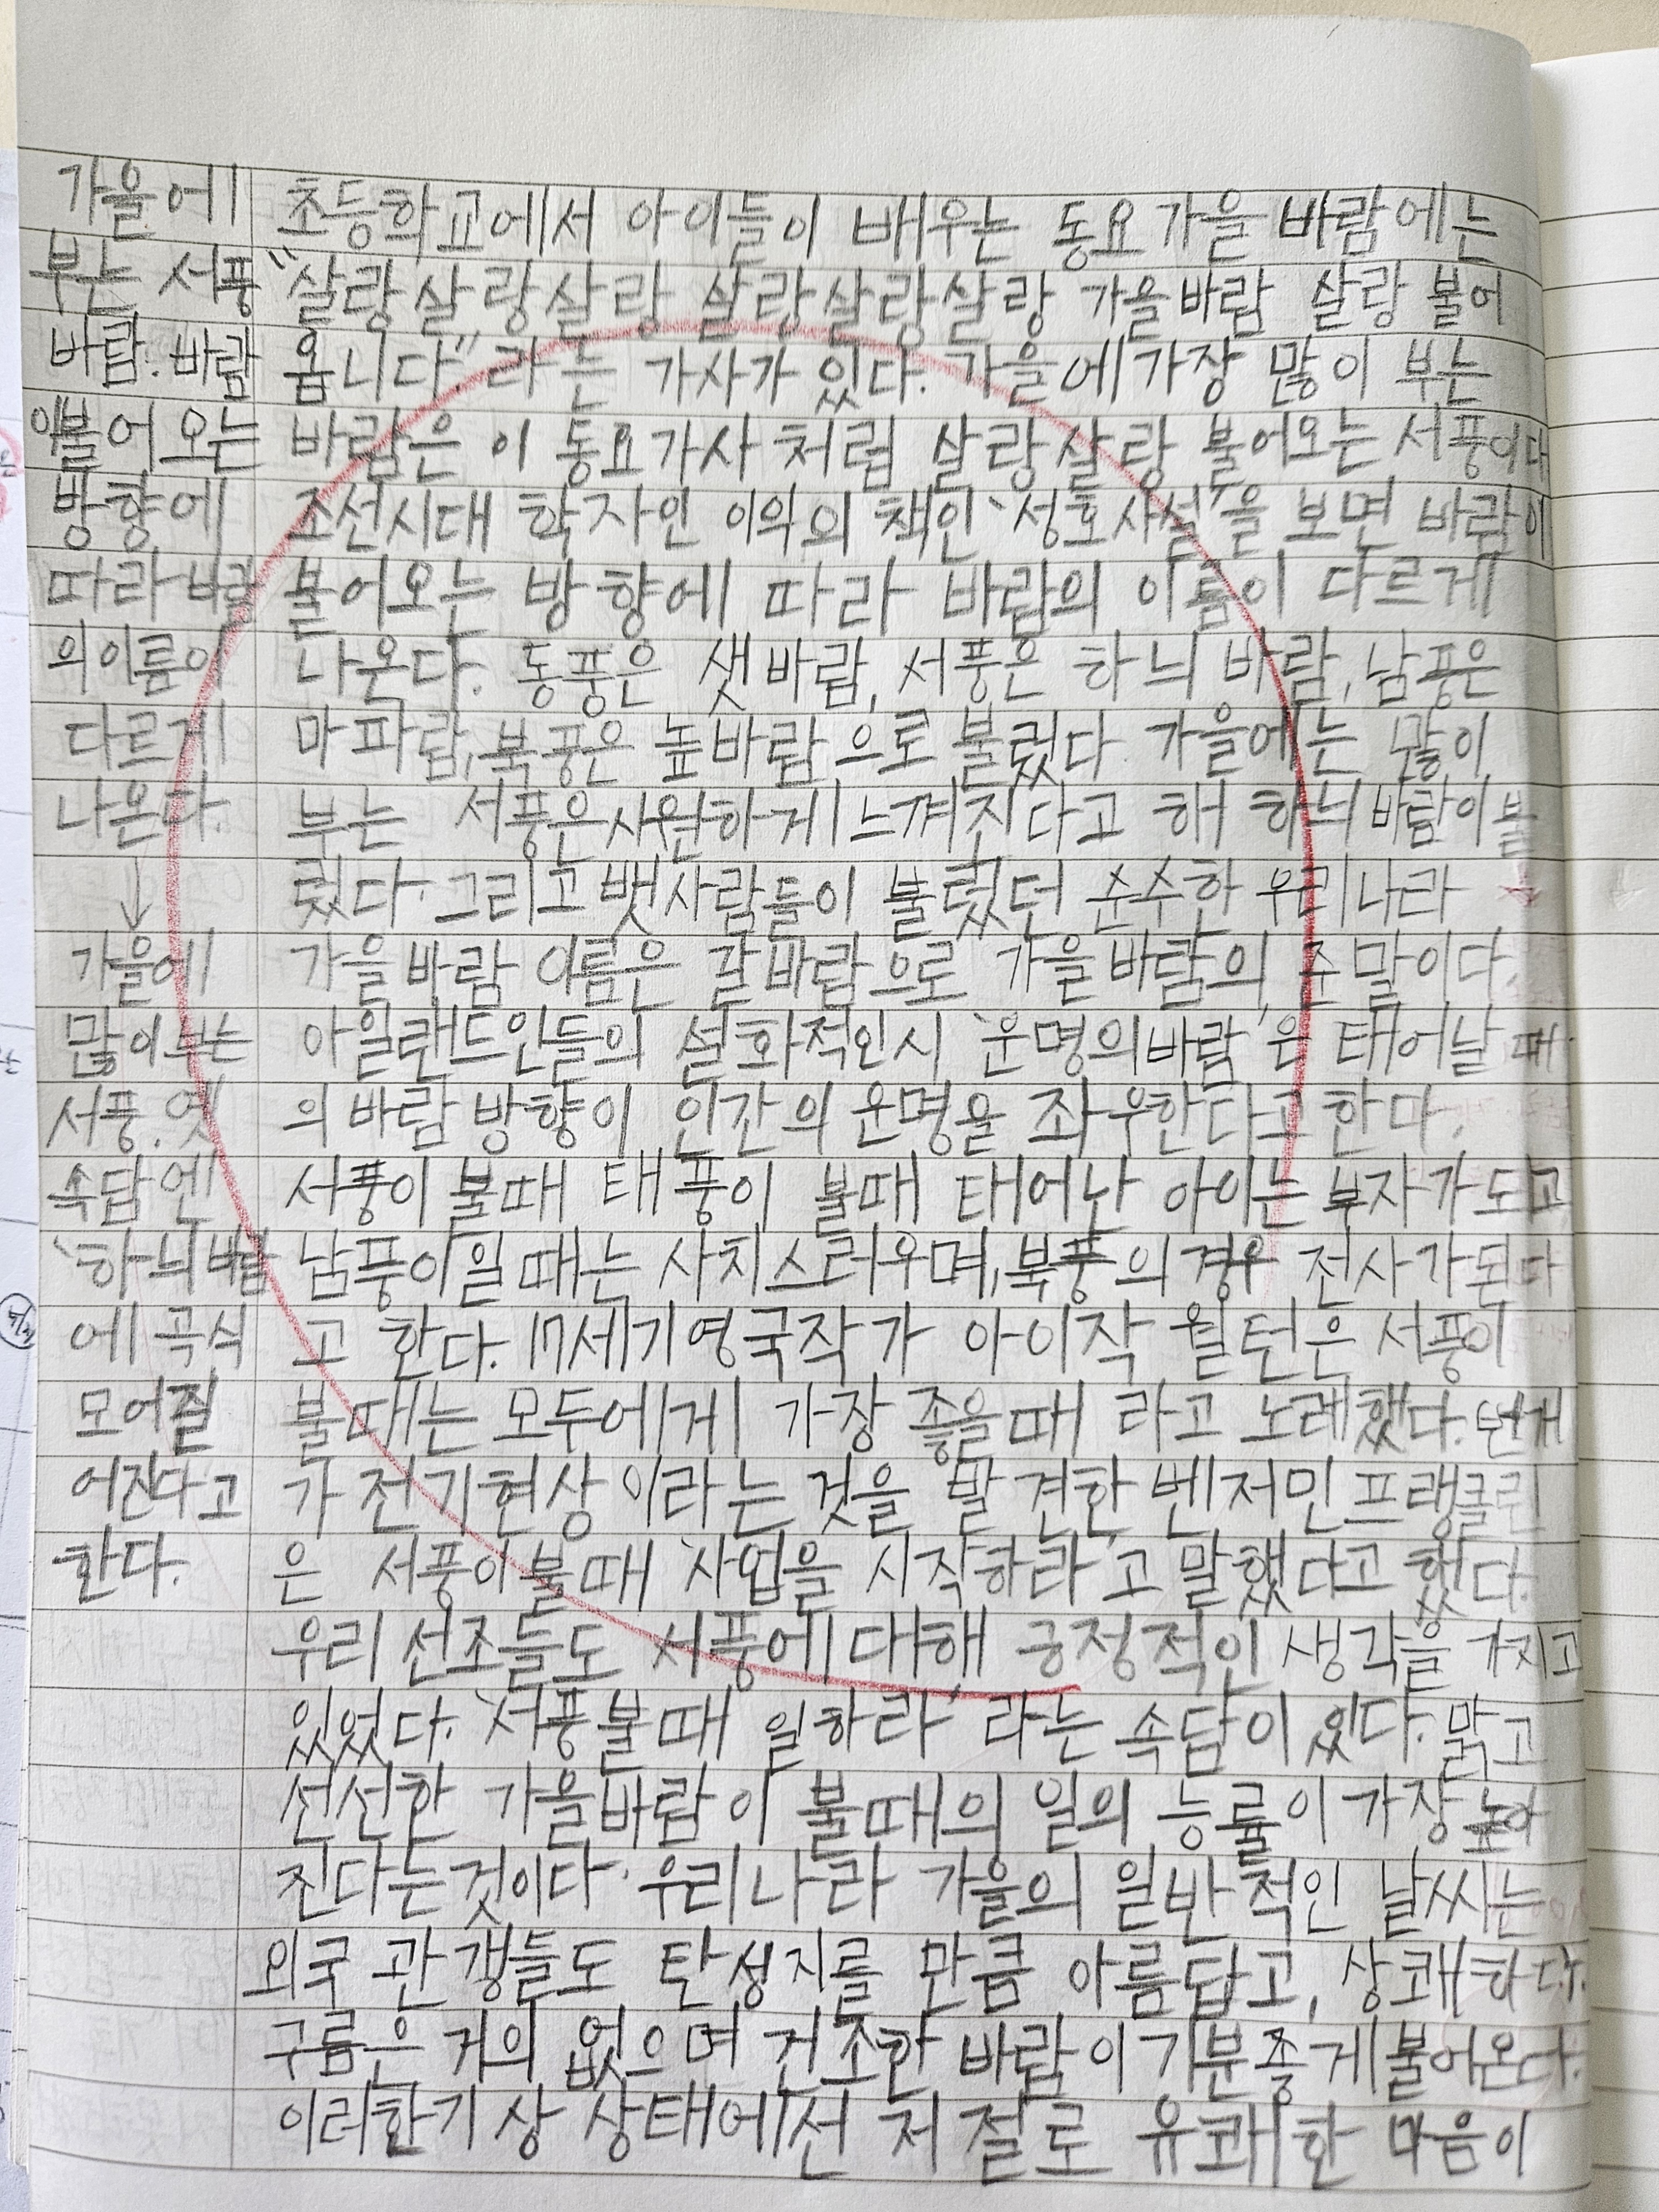 가을에
부는 서풍
바람. 바람
이불어 오는
방향에
따라 바람
의이름이
다르게
나온다.
↓
가을에
많이 부는
서풍. 옛
속담엔
'하늬바람
에 곡식
모어질
어진다고
한다.
초등학교에서 아이들이 배우는 동요 가을 바람에는
"살랑살랑살랑 살랑살랑살랑 가을바람 살랑 불어
옵니다" 라는 가사가 있다. 가을에 가장 많이 부는
바람은 이 동요가사 처럼 살랑살랑 불어오는 서풍이다
조선시대 학자인 이익의 책인 '성호사설'을 보면 바람이
불어오는 방향에 따라 바람의 이름이 다르게
나온다. 동풍은 샛바람, 서풍은 하늬 바람, 남풍은
마파람, 북풍은 높바람으로 불렸다. 가을에는 많이
부는 서풍은 시원하게 느껴진다고 해 하늬바람이 불
렸다. 그리고 뱃사람들이 불렀던 순수한 우리나라
가을바람 이름은 갈바람으로 가을바람의 준말이다.
아일랜드인들의 설화적인시 '운명의바람'은 태어날 때
의 바람 방향이 인간의 운명을 좌우한다고 한다.
서풍이 불때 태풍이 불때 태어난 아이는 부자가 되고
남풍이일때는 사치스러우며, 북풍의 경우 전사가된다
고 한다. 17세기영국작가 아이작 월턴은 서풍이
불때는 모두에게 가장 좋을때 라고 노래했다. 번개
가 전기현상이라는 것을 발견한 벤저민 프랭클린
은 서풍이불때 '사업을 시작하라'고 말했다고 했다.
우리 선조들도 서풍에 대해 긍정적인 생각을 가지고
있었다. '서풍불때 일하라' 라는 속담이 있다. 맑고
선선한 가을바람이 불때의 일의 능률이 가장 높아
진다는 것이다. 우리나라 가을의 일반적인 날씨는
외국 관갱들도 탄성지를 만큼 아름답고, 상쾌하다.
구름은 거의 없으며 건조한 바람이 기분좋게불어온다.
이러한기상 상태에선 저절로 유쾌한 마음이